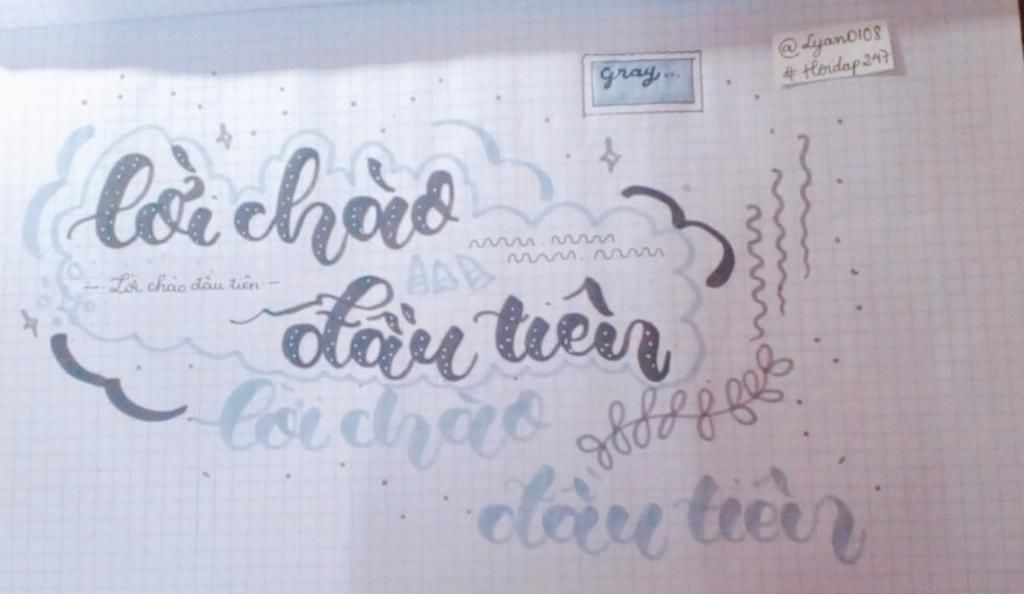 @Lyan0108
# Hoidap247
gray...
lời chào
- Lời chào đầu tiên -
đầu tiên
lời chào
đầu tiên